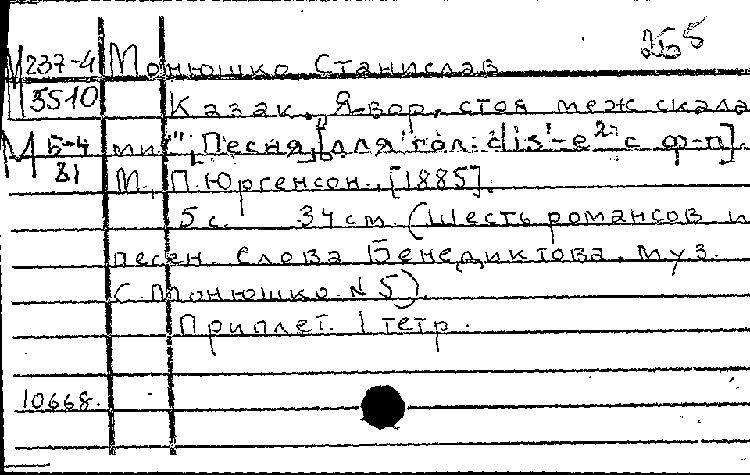 265
М 237-4 Монюшко Станислав
3510 Казак. „Явор, стоя меж скала
М Б-4 ми", Песня [для гол. dis¹-e² с ф-п].
81 М., П. Юргенсон, [1885].
5 с. 34 см. (Шесть романсов и
песен. Слова Бенедиктова. муз.
С. Монюшко. N 5).
Приплет. 1 тетр.
10668.